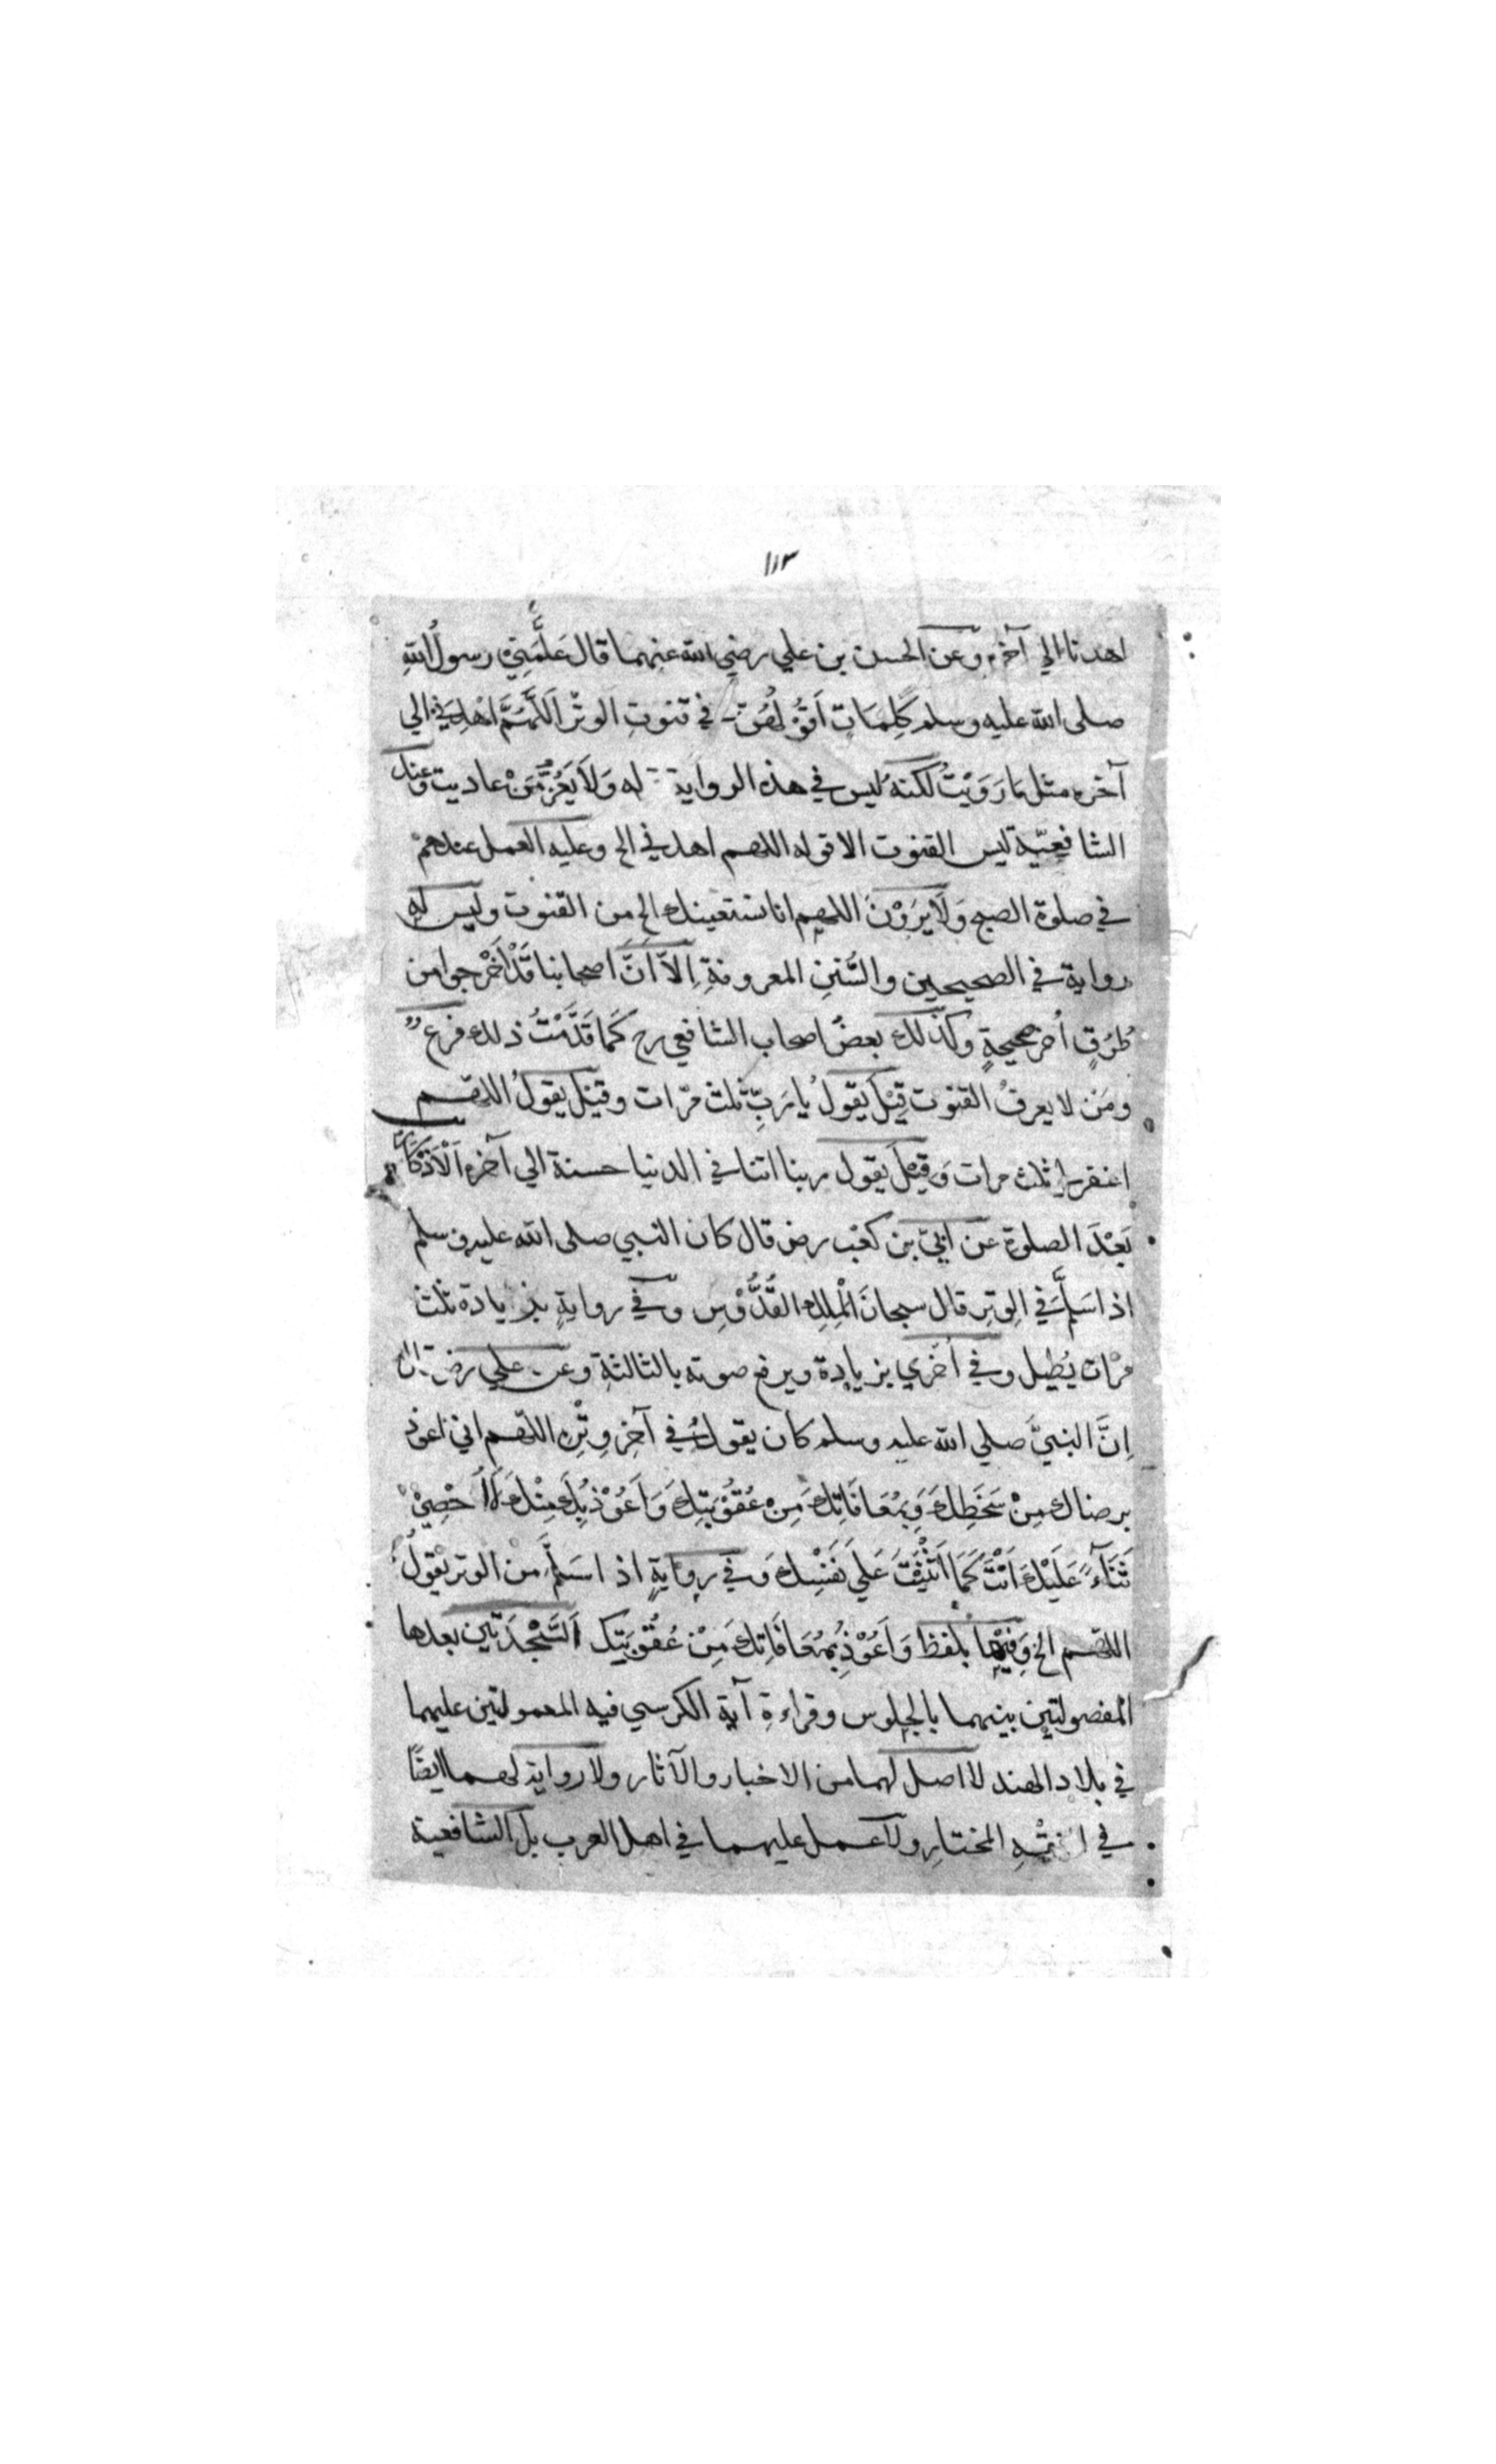 ١١٣
اهدنا الي آخره وعن الحسن بن علي رضي الله عنهما قال عَلَّمَنِيْ رسولُ اللهِ
صلى الله عليه وسلم كَلِمَاتٍ اَقُوْلُهُنَّ في قنوتِ الوتْرِ اَللّٰهُمَّ اهْدِنِيْ الي
آخره مثل مَا رَوَيْتُ لكنه ليس في هذه الرواية له وَلَا يَعُزُّ مَنْ عاديت وعند
الشافعِيّة ليس القنوت الا قوله اللهم اهدني الخ وعليه العمل عندهمْ
في صلوة الصبح وَلَا يَرَوْنَ اللهم انا نستعينك الخ من القنوت وليس له
رواية في الصحيحين والسُّننِ المعروفةِ اِلَّا اَنَّ اصحابنا قَدْ اَخْرجوا من
طُرُقٍ اُخرَ صحيحةٍ وكذلك بعضُ اصحاب الشافعي رح كَمَا قَدَّمْتُ ذلك فرعٌ
ومَنْ لا يعرفُ القنوت قِيْلَ يَقولُ يا رَبِّ ثلث مرّات وقيْلَ يقولُ اللهم
اغفرلي ثلث مرات وَقيْلَ يقول ربنا اتنا في الدنيا حسنة الي آخره اَلْاَذْكَارُ
بَعْدَ الصلوة عن ابيّ بن كعْب رض قال كان النبي صلى الله عليه وسلم
اذا سَلَّمَ في الوِترِ قال سبحانَ الْمَلِكِ القُدُّوْسِ وفي روايةٍ بزيادة ثلث
مرّات يُطيل وفي اُخْري بزيادة ويرفع صوته بالثالثةِ وعن علي رض
اِنَّ النبيَّ صلي الله عليه وسلم كان يقولُ في آخِرِ وِتْرِهِ اللهم اني اعوذ
برضاك مِنْ سَخَطِكَ وَبِمُعَافَاتِكَ مِنْ عُقُوْبَتِكَ وَاَعُوْذُ بِكَ مِنْكَ لَا اُحْصِيْ
ثَنَآءً عَلَيْكَ اَنْتَ كَمَا اَثْنَيْتَ عَلَي نَفْسِكَ وَفي روايةٍ اذا سَلَّمَ من الوتر يقولُ
اللهم الخ وَفيْهَا بلفظ وَاَعُوْذُ بِمُعَافَاتِكَ مِنْ عُقُوْبَتِكَ اَلسَّجْدَتَين بعدها
المفصولتين بينهما بالجلوس وقراءةِ آية الكرسي فيه المعمولتين عليهما
في بلاد الهند لا اصل لهما من الاخبار والآثار ولا رواية لهما ايضًا
في المختارِ ولا عمل عليهما في اهل العرب بل الشافعية